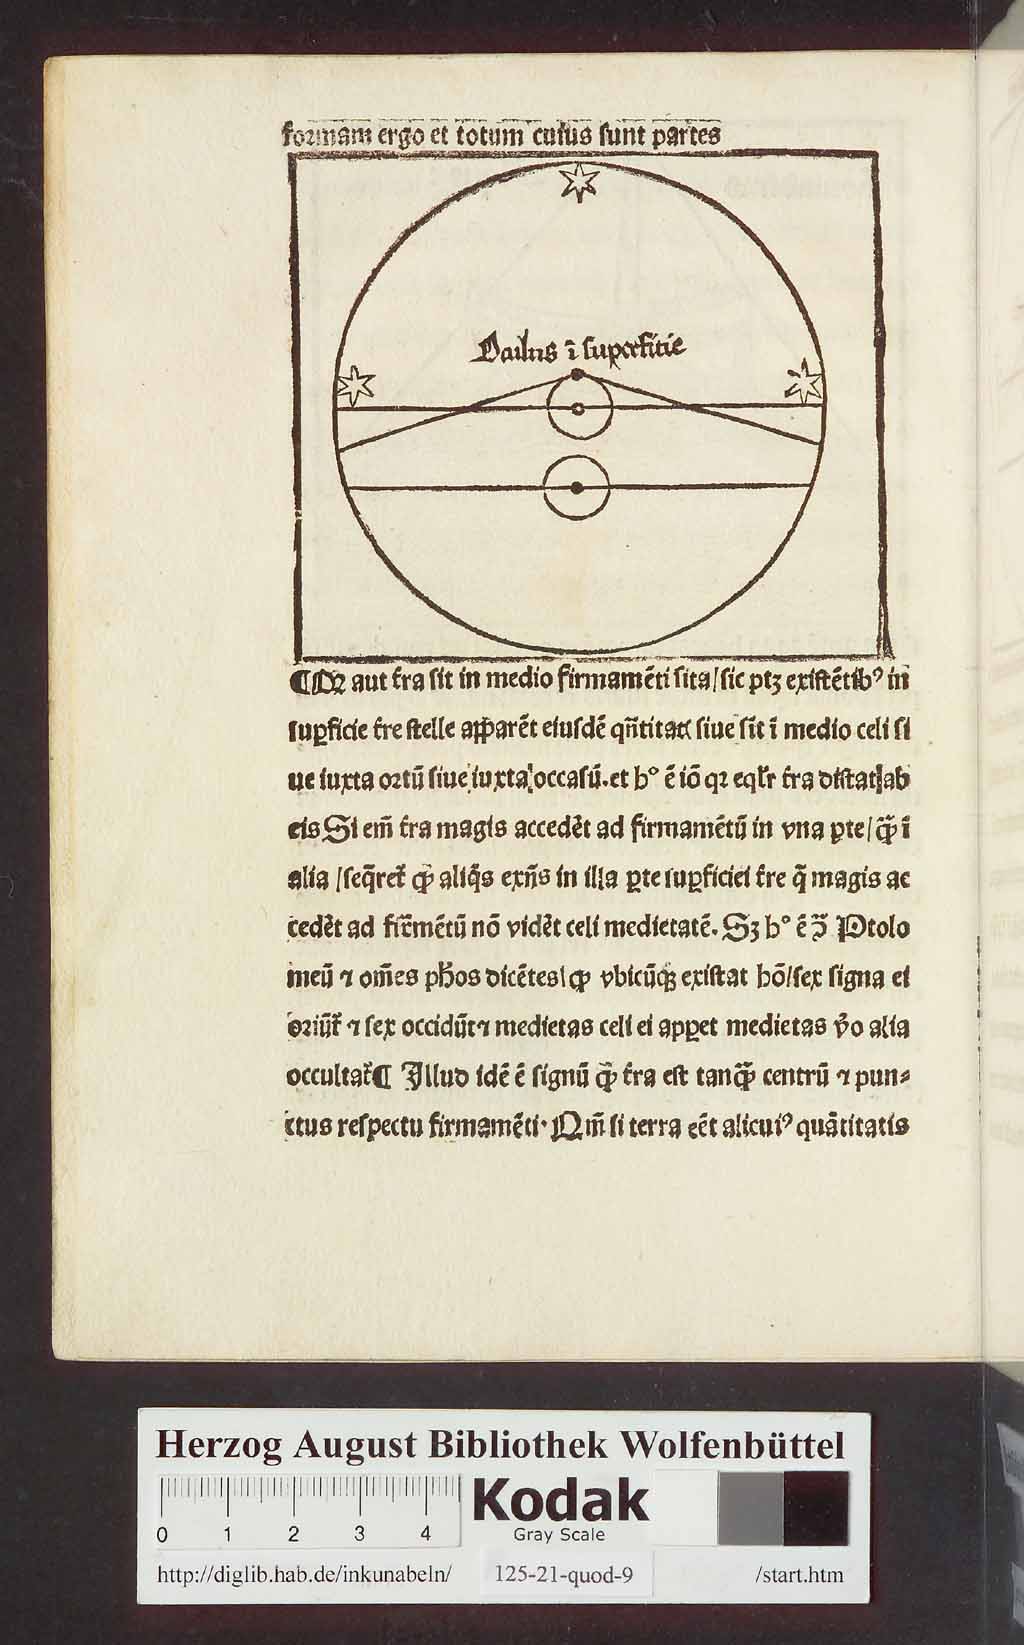 formam ergo et totum cuius sunt partes
Oculus ī superfitie
¶Qꝛ aut t̃ra sit in medio firmamēti sita/sic ptꝫ existētibꝰ in
suꝑficie t̃re stelle apꝑarēt eiusdē qñtitat siue sit ī medio celi si
ue iuxta ortū siue iuxta occasū. et hᵒ ē iō qꝛ eqlr̃ t̃ra distat ab
eis Si em̄ t̃ra magis accedet ad firmamētū in vna ꝑte/ꝙ̃ ī
alia /seq̄ret̃ ꝙ aliq̄s exñs in illa ꝑte suꝑficiei t̃re q̄ magis ac
cedet ad fir̄mētū nō videt celi medietatē. Sꝫ hᵒ ē ↄ̃ Ptolo
meū ⁊ om̄es ph̄os dicētes/ꝙ vbicūqꝫ existat hō/sex signa ei
oriūt̃ ⁊ sex occidūt ⁊ medietas celi ei apꝑet medietas v̊o alia
occultat̃ ¶ Illud idē ē signū ꝙ̃ t̃ra est tanꝙ̃ centrū ⁊ pun⸗
ctus respectu firmamēti. Qm̄ si terra eēt alicuiꝰ quātitatis
Herzog August Bibliothek Wolfenbüttel
0 1 2 3 4
Kodak
Gray Scale
http://diglib.hab.de/inkunabeln/ 125-21-quod-9 /start.htm